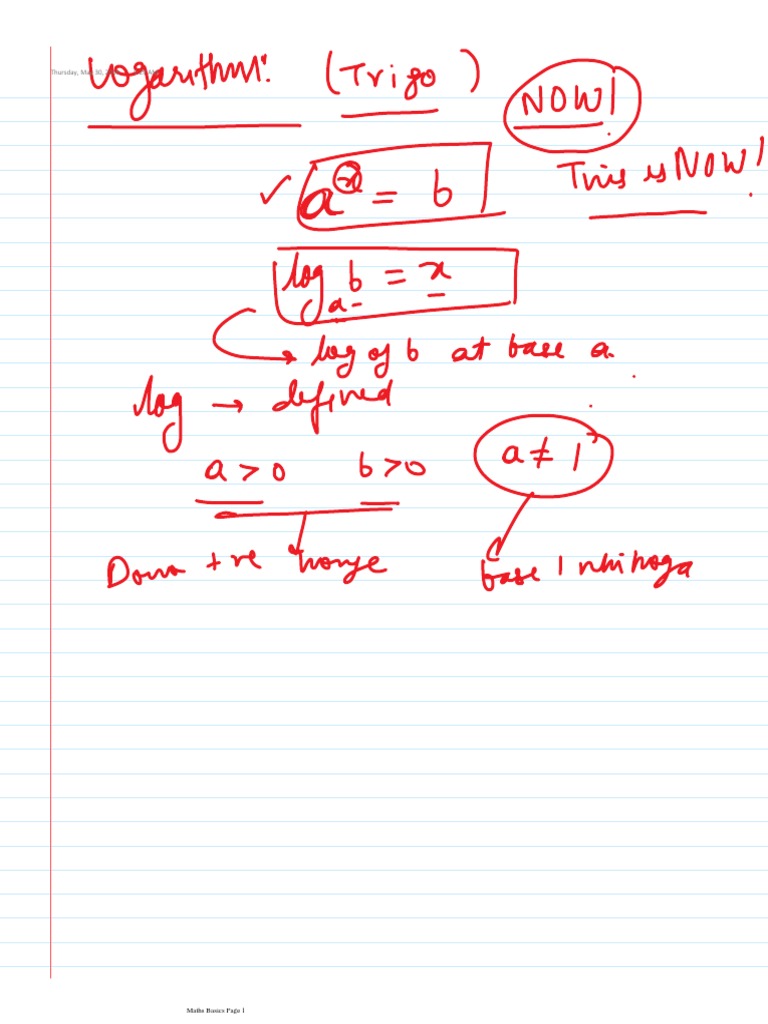 Logarithm: (Trigo) NOW!
This is NOW!
✓ a^x = b
log_a b = x
→ log of b at base a.
log → defined
a > 0 b > 0 a ≠ 1
+ve honge base 1 nhi hoga
Maths Basics Page 1